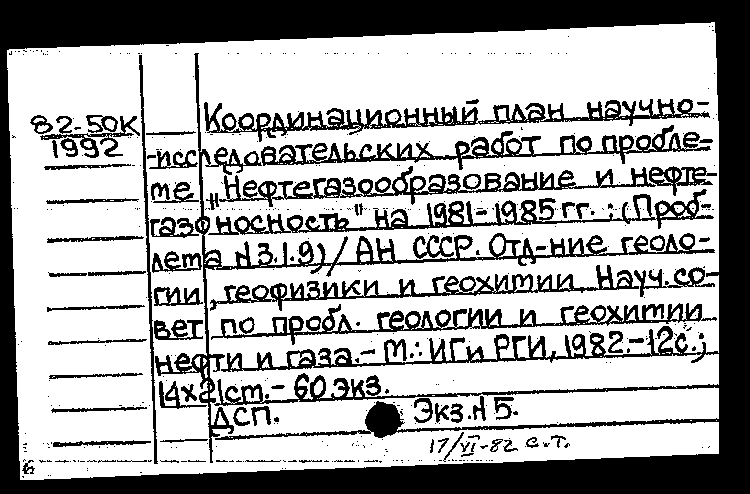 82-50К
1992
Координационный план научно-
-исследовательских работ по пробле-
ме „Нефтегазообразование и нефте-
газоносность" на 1981-1985 гг. : (Проб-
лема N3.1.9) / АН СССР. Отд-ние геоло-
гии, геофизики и геохимии. Науч. со-
вет по пробл. геологии и геохимии
нефти и газа. - М.: ИГиРГИ, 1982. - 12с.;
14х21см. - 60 экз.
ДСП. Экз. N 5.
17/VI-82 с.т.